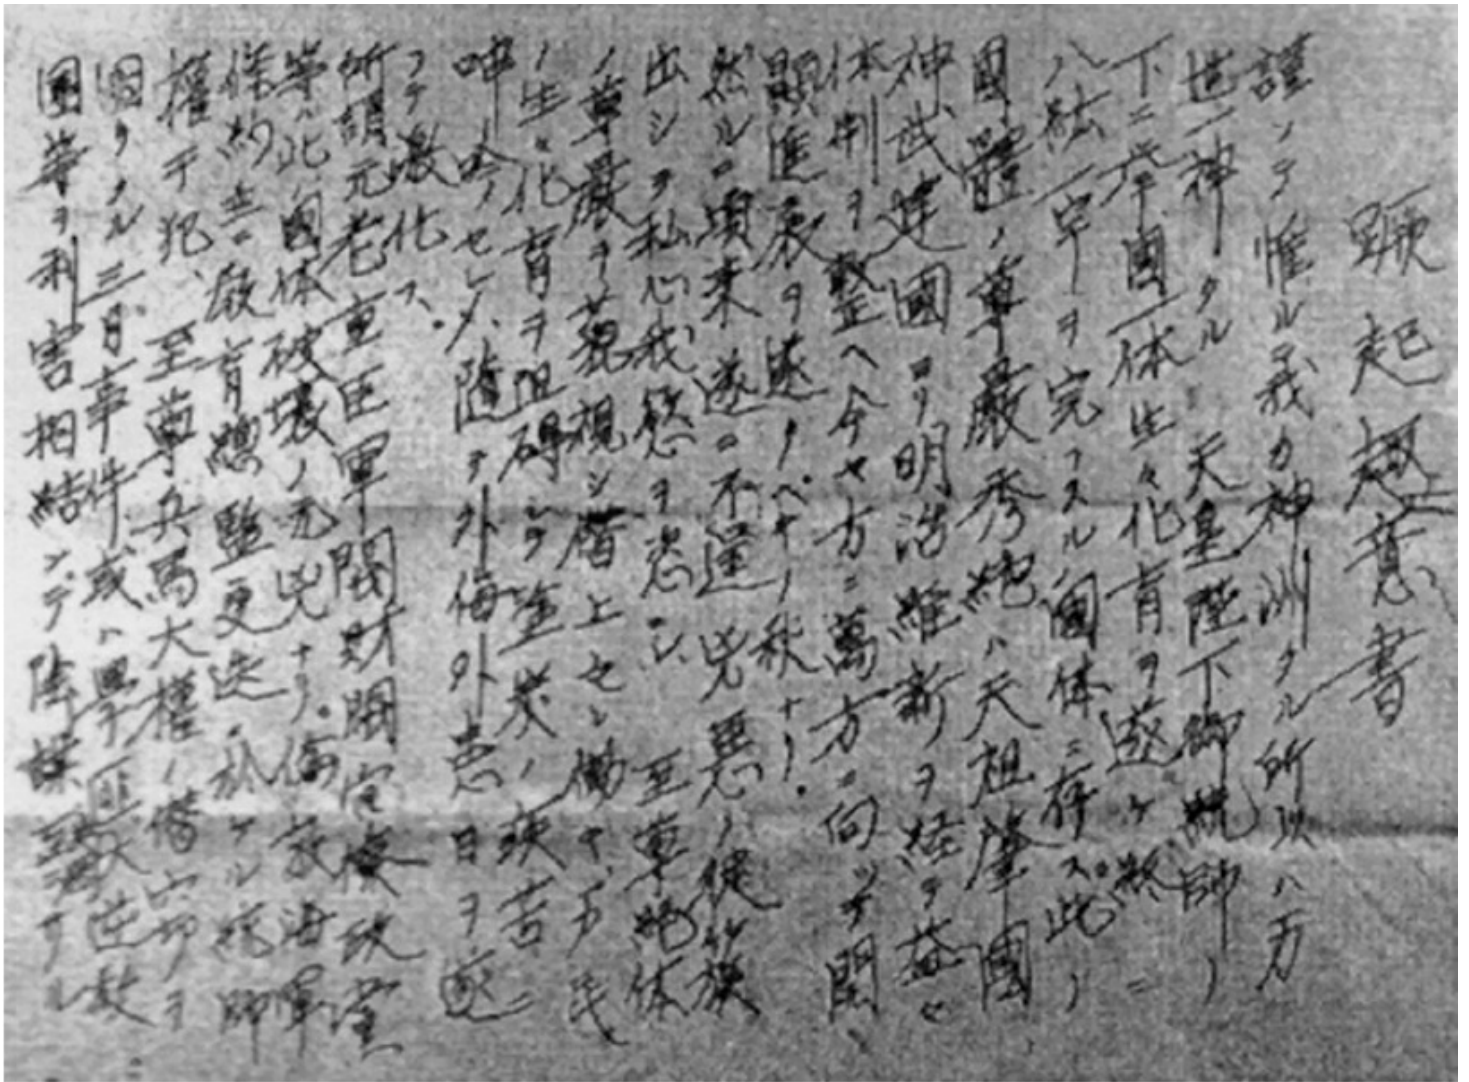 蹶起趣意書
謹ンテ惟ルニ我カ神洲タル所以ハ万
世一神タル 天皇陛下御統帥ノ
下ニ挙國一体生々化育ヲ遂ケ終ニ
八紘一宇ヲ完フスル國体ニ存ス。此ノ
國體ノ尊厳秀絶ハ天祖肇國
神武建國ヨリ明治維新ヲ経テ益々
体制ヲ整ヘ今ヤ方ニ萬方ニ向ツテ開
顕進展ヲ遂クヘキノ秋ナリ。
然ルニ頃来遂ニ不逞凶悪ノ徒簇
出シテ私心我慾ヲ恣ニシ、至尊絶体
ノ尊厳ヲ藐視シ僭上セレ働キ、万民
ノ生々化育ヲ阻碍シテ塗炭ノ疾苦ニ
呻吟セシメ、随テ外侮外患日ヲ逐
フテ激化ス。
所謂元老重臣軍閥財閥官僚政党
等ハ此國体破壊ノ元兇ナリ。倫敦海軍
條約並ニ教育總監更迭ニ於ケル統帥
權干犯、至尊兵馬大權ノ僭窃ヲ
圖リタル三月事件或ハ學匪共匪大逆教
團等ト利害相結ンデ陰謀至ラザル